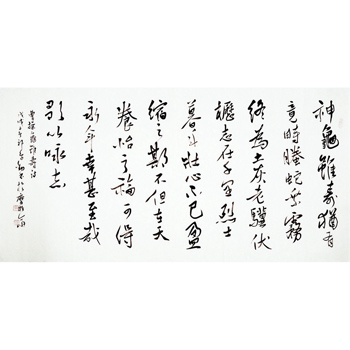 神龜雖壽猶有
竟時螣蛇乘霧
終為土灰老驥伏
櫪志在千里烈士
暮年壯心不已盈
縮之期不但在天
養怡之福可得
永年幸甚至哉
歌以咏志
曹操龜雖壽詩
戊戌